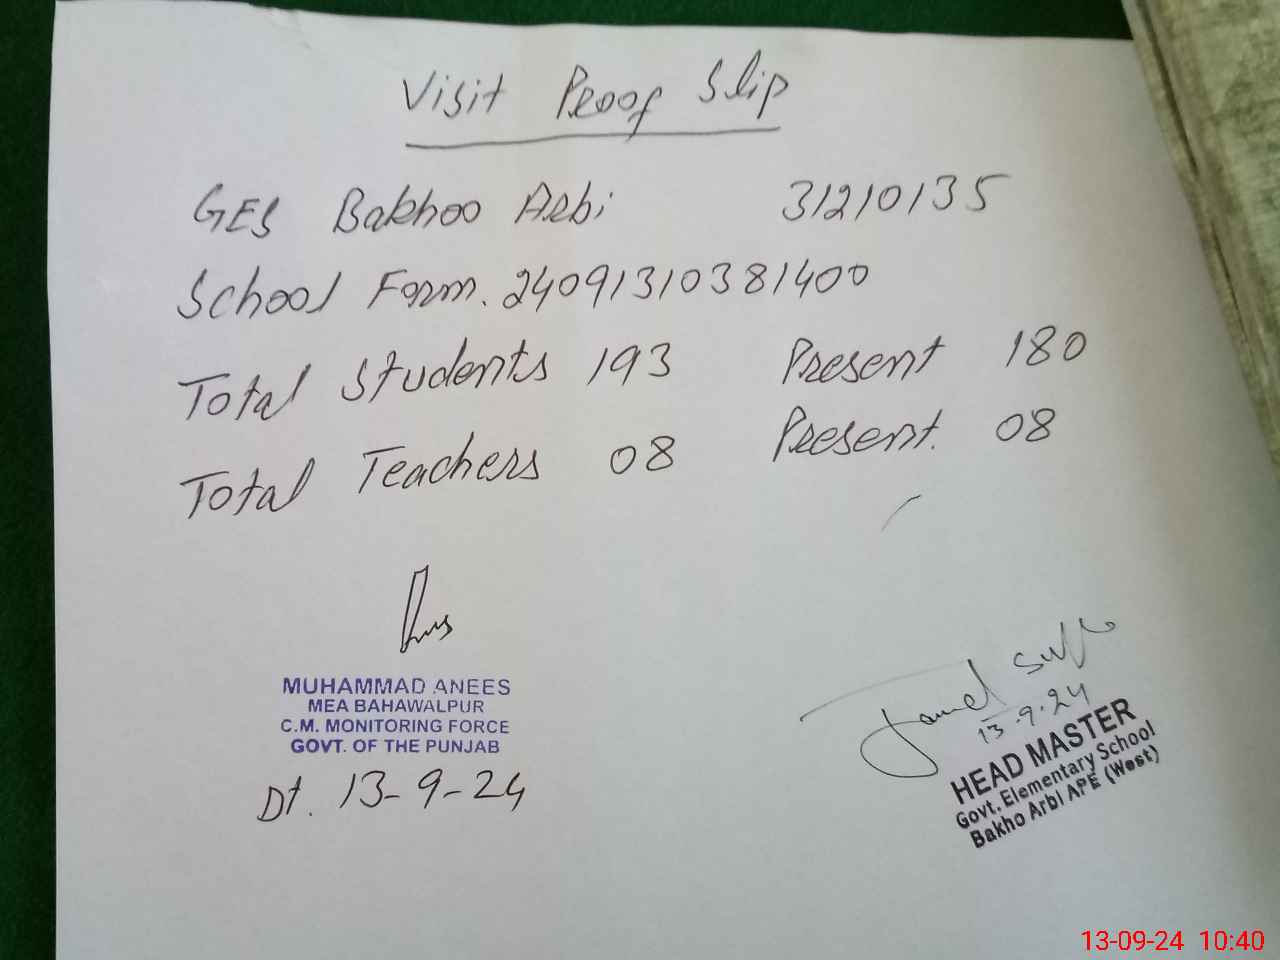 Visit Proof Slip
GES Bakhoo Arbi 31210135
School Form. 24091310381400
Total Students 193 Present 180
Total Teachers 08 Present. 08
MUHAMMAD ANEES
MEA BAHAWALPUR
C.M. MONITORING FORCE
GOVT. OF THE PUNJAB
Dt. 13-9-24
13-9-24
HEAD MASTER
Govt. Elementary School
Bakho Arbi APE (West)
13-09-24 10:40